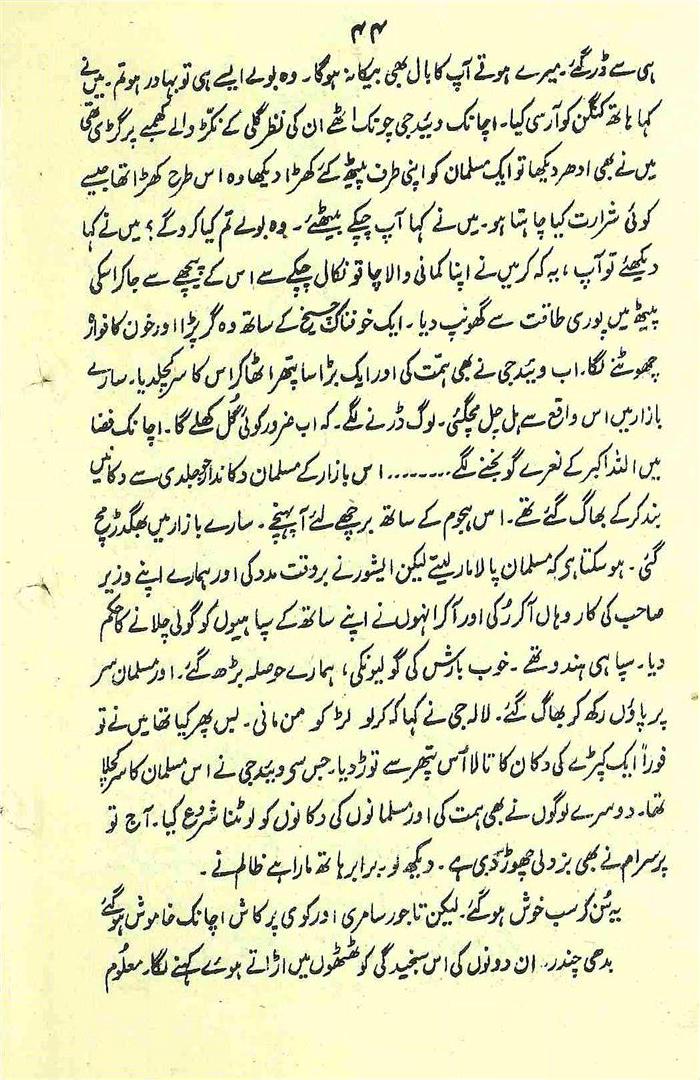 ۴۴
ہی سے ڈر گئے۔ میرے ہوتے آپ کا بال بھی بیکا نہ ہوگا۔ وہ بولے ایسے ہی تو بہادر ہو تم۔ میں نے
کہا ہاتھ کنگن کو آرسی کیا۔ اچانک وئیدجی چونک اٹھے ان کی نظر گلی کے نکڑ والے کھمبے پر گڑی تھی
میں نے بھی ادھر دیکھا تو ایک مسلمان کو اپنی طرف پیٹھ کے کھڑا دیکھا وہ اس طرح کھڑا تھا جیسے
کوئی شرارت کیا چاہتا ہو۔ میں نے کہا آپ چپکے بیٹھئے۔ وہ بولے تم کیا کرو گے؟ میں نے کہا
دیکھئے تو آپ، یہ کہہ کر میں نے اپنا کمانی والا چاقو نکال چپکے سے اس کے پیچھے سے جا کر اسکی
پیٹھ میں پوری طاقت سے گھونپ دیا۔ ایک خوفناک چیخ کے ساتھ وہ گر پڑا اور خون کا فوارہ
چھوٹنے لگا۔ اب وئیدجی نے بھی ہمت کی اور ایک بڑا سا پتھر اٹھا کر اس کا سر کچلدیا۔ سارے
بازار میں اس واقع سے ہل چل مچگئی۔ لوگ ڈرنے لگے۔ کہ اب ضرور کوئی گُل کھلے گا۔ اچانک فضا
میں اللہ اکبر کے نعرے گونجنے لگے ........ اس بازار کے مسلمان دکاندار جو جلدی سے دکانیں
بند کر کے بھاگ گئے تھے۔ اس ہجوم کے ساتھ برچھے لئے آ پہنچے۔ سارے بازار میں بھگدڑ مچ
گئی۔ ہو سکتا ہی کہ مسلمان پالا مار لیتے لیکن ایشور نے بروقت مدد کی اور ہمارے اپنے وزیر
صاحب کی کار وہاں آ کر رُکی اور آ کر انہوں نے اپنے ساتھ کے سپاہیوں کو گولی چلانے کا حکم
دیا۔ سپاہی ہندو تھے۔ خوب بارش کی گولیونکی، ہمارے حوصلہ بڑھ گئے۔ اور مسلمان سر
پر پاؤں رکھ کر بھاگ گئے۔ لالہ جی نے کہا کہ کر لو لڑکو من مانی۔ بس پھر کیا تھا میں نے تو
فوراً ایک کپڑے کی دکان کا تالا اُس پتھر سے توڑ دیا۔ جس سی وئیدجی نے اس مسلمان کا سر کچلا
تھا۔ دوسرے لوگوں نے بھی ہمت کی اور مسلمانوں کی دکانوں کو لوٹنا شروع کیا۔ آج تو
پرسرام نے بھی بزدلی چھوڑ دی ہے۔ دیکھ لو۔ برابر ہاتھ مارا ہے ظالم نے۔
یہ سُن کر سب خوش ہو گئے۔ لیکن تاجور سامری اور کوی پرکاش اچانک خاموش ہو گئے
بدھی چندر۔ ان دونوں کی اس سنجیدگی کو ٹھٹھوں میں اڑاتے ہوئے کہنے لگا۔ معلُوم